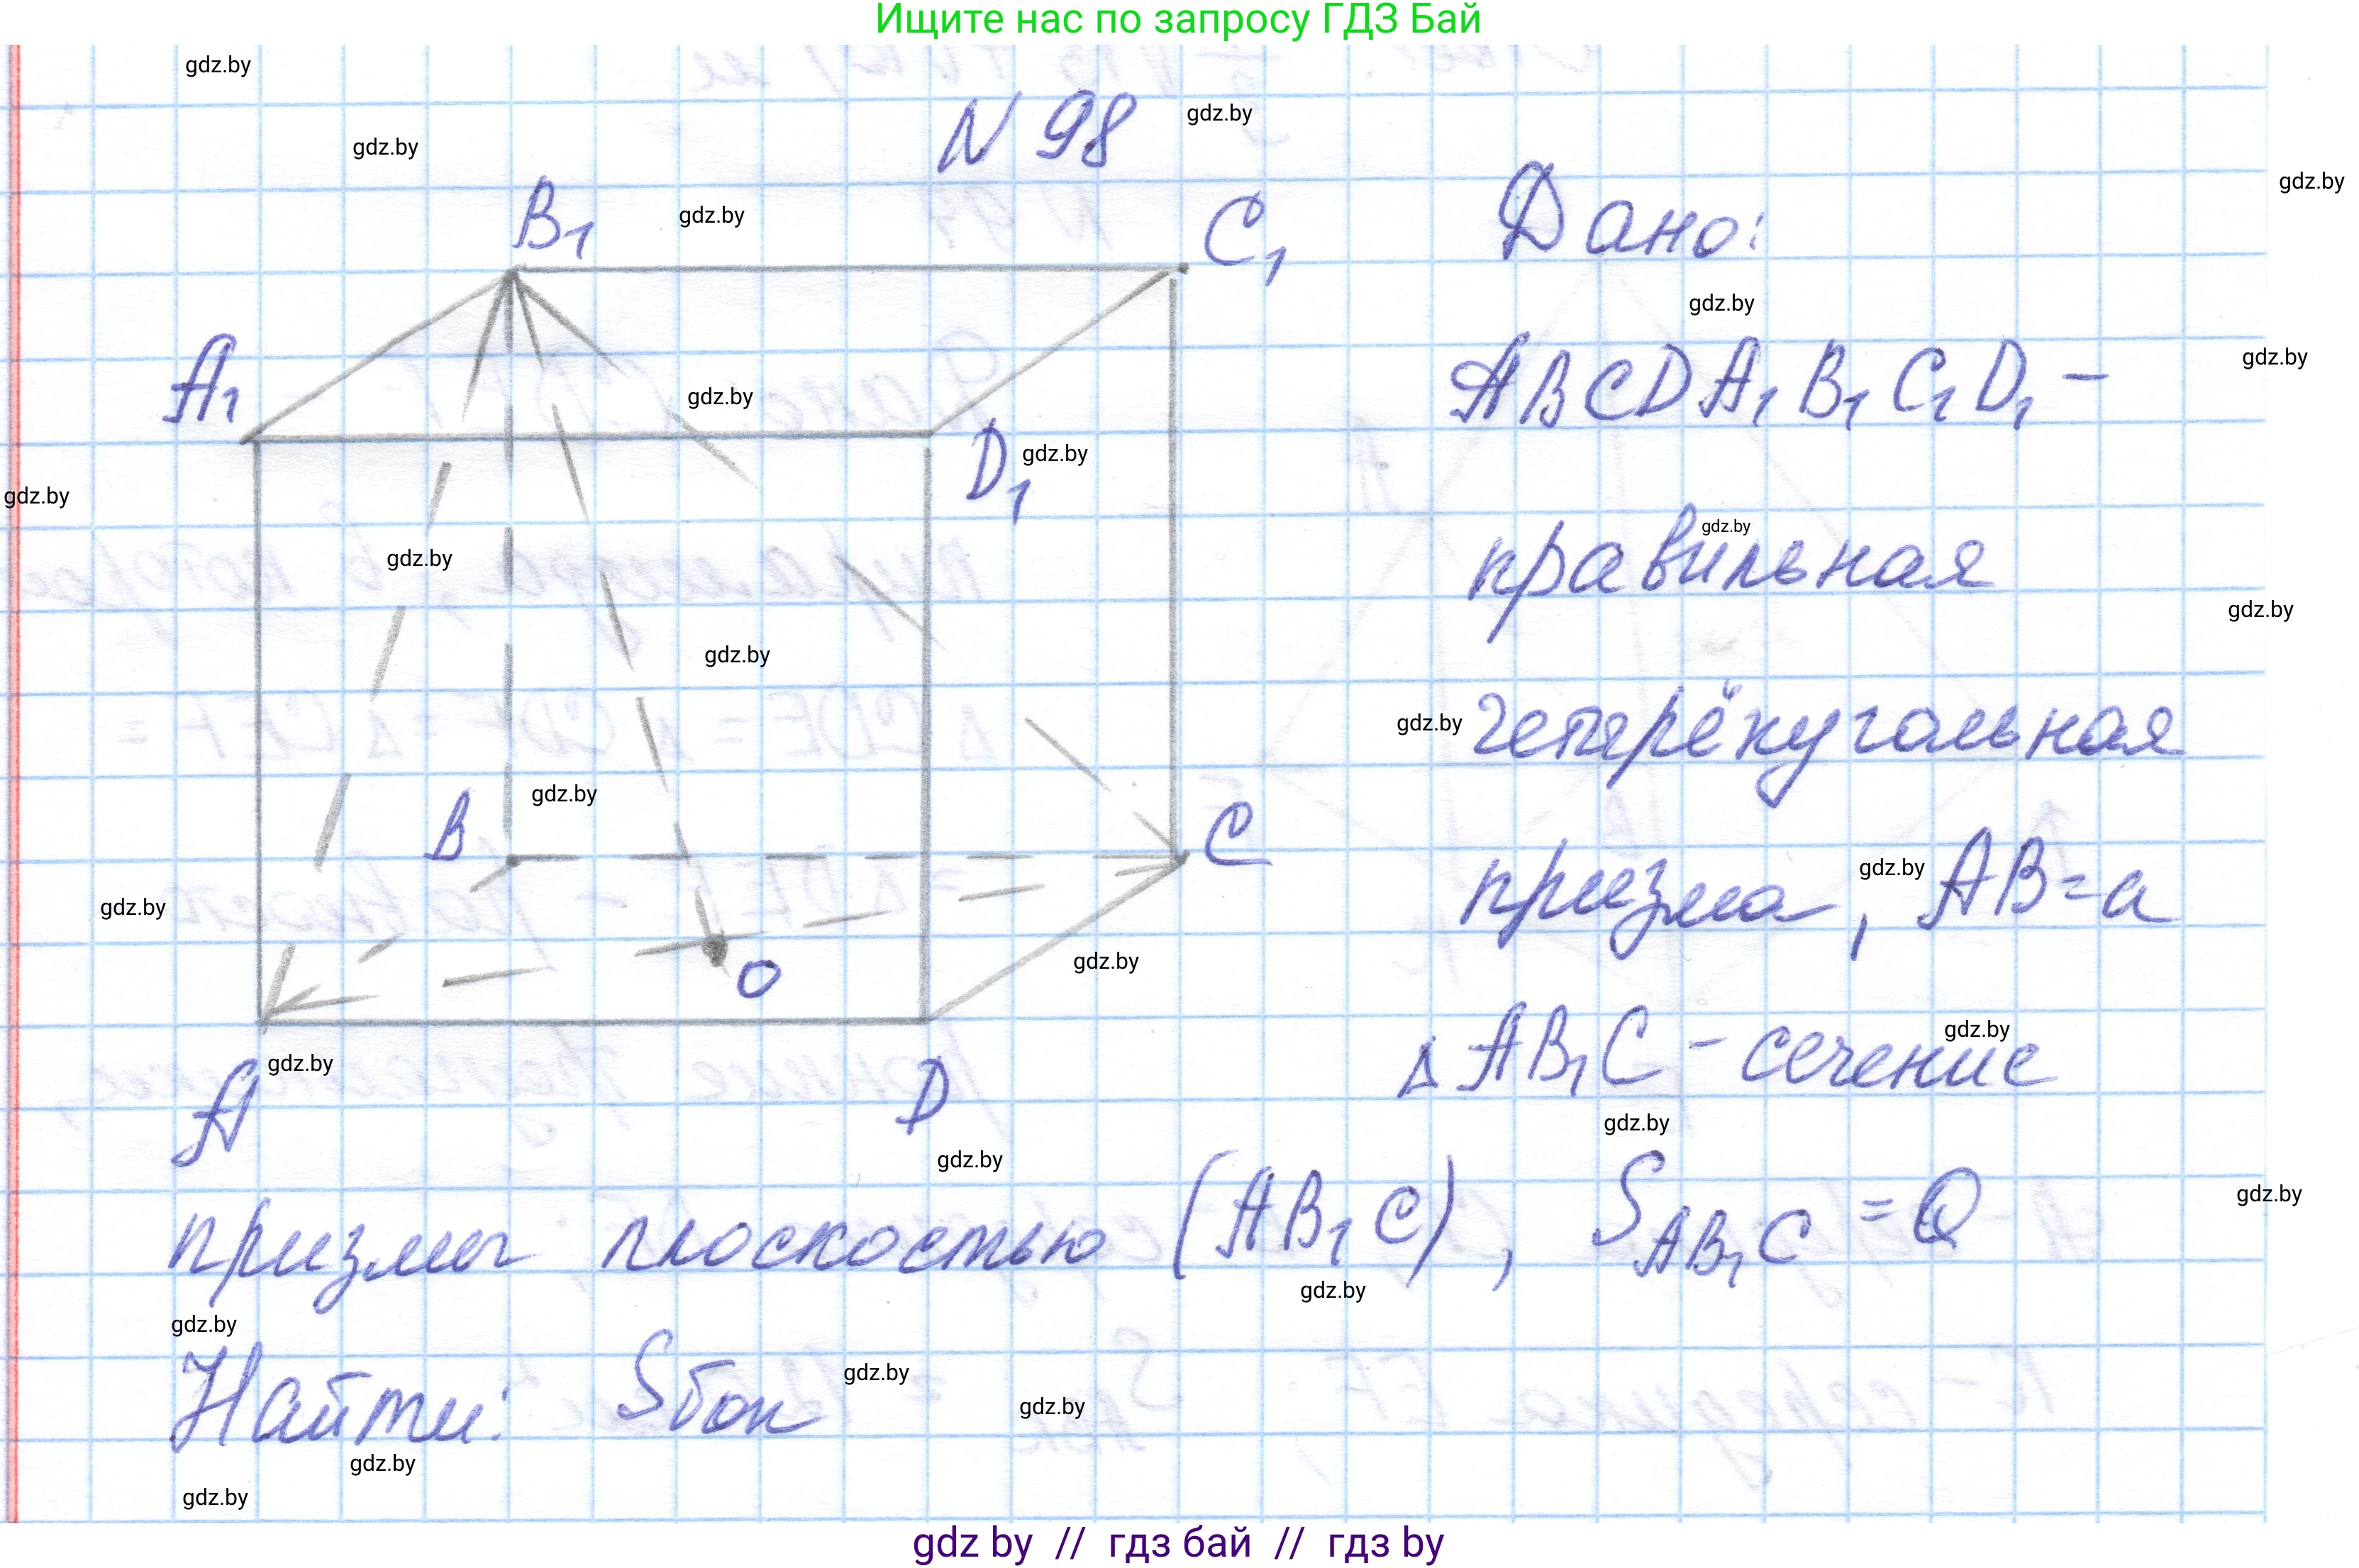 Ищите нас по запросу ГДЗ Бай
gdz.by
N 98
gdz.by
gdz.by
gdz.by
B₁
gdz.by
C₁
Дано:
gdz.by
A₁
gdz.by
ABCDA₁B₁C₁D₁ –
gdz.by
D₁
gdz.by
gdz.by
gdz.by
правильная
gdz.by
gdz.by
gdz.by
gdz.by
четырёхугольная
B
gdz.by
C
призма, AB=a
gdz.by
gdz.by
O
gdz.by
Δ AB₁C – сечение
gdz.by
A
gdz.by
D
gdz.by
gdz.by
призмы плоскостью (AB₁C), S_AB₁C = Q
gdz.by
gdz.by
gdz.by
Найти: Sбок
gdz.by
gdz.by
gdz.by
gdz.by
gdz by // гдз бай // гдз by